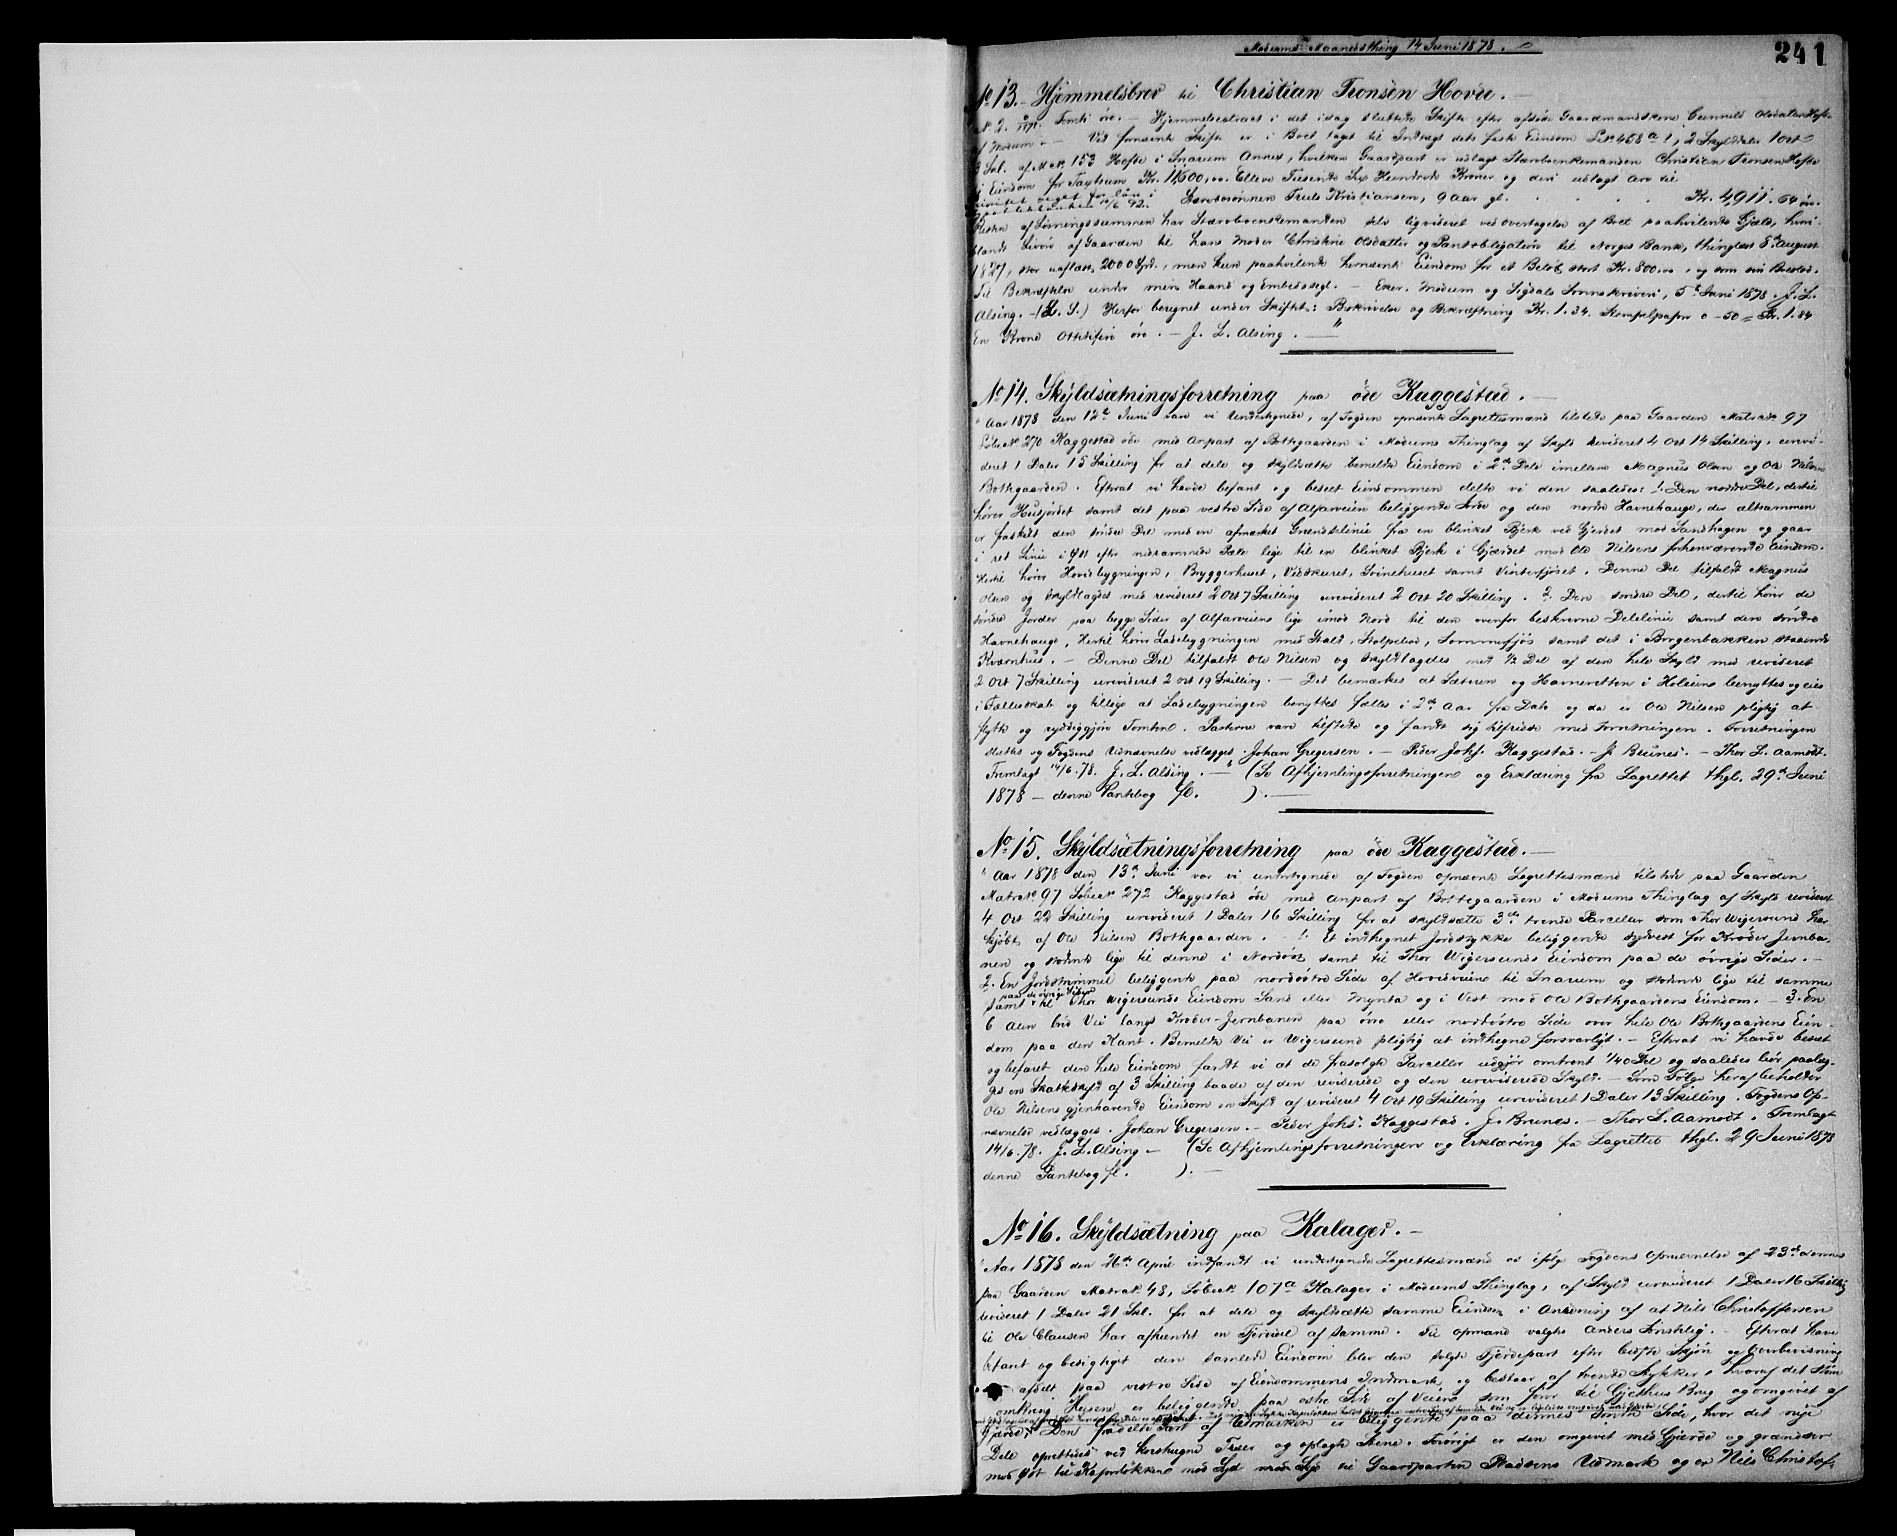 Modums Maanedsthing 14 Juni 1878.
241
No 13. Hjemmelsbrev til Christian Tronsen Hovde.
Hjemmelsextract i det idag sluttede Skifte efter afdøde Gaardmandskone Gunnild Olsdatter Hofte
af Modum. Ved fornævnte Skifte er i Boet tagt til Indtægt dets faste Eiendom Lit. 458a, 2 Skylddaler 1 Ort
3 Skl. af Mat. 153 Hofte i Snarum Annex, hvilken Gaardpart er udlagt Stervboenkemanden Christian Tronsen Hofte
i Eiendom for Taxtsum Kr. 11,600,00 Elleve Tusende Sex Hundrede Kroner og deri udlagt Arv til
Stervbosønnen Truls Kristiansen, 9 aar gl. . . . . Kr. 4911. 64 øre.
Resten af Løsningssummen har Stervboenkemanden selv liqvideret ved Overtagelse af Boet paahvilende Gjæld, hvori-
blandt Livøre af Gaarden til hans Moder Christine Olsdatter og Pantobligation til Norges Bank, thinglæst 8de August
1827, stor uaflæst 2000 Spd., men kun paahvilende heromhandlede Eiendom for et Beløb stort Kr. 800,00, og som sin Bested.
Til Bekræftelse under min Haand og Embedssegl. — Eker, Modum og Sigdals Sorenskriveri, 5te Juni 1878. J. L.
Alsing. — (L. S.) Herfor beregnet under Skiftet: Beskrivelse og Bekræftning Kr. 1. 34. Stempelpapir 0 - 50 = Kr. 1. 84
En Krone Ottifire øre. — J. L. Alsing. —"
No 14. Skyldsætningsforretning paa øde Kaggestad. —
"Aar 1878 den 12te Juni vare vi Undertegnede, af Fogden opnævnte Lagrettesmænd tilstede paa Gaarden Matr. No 97
Løbe No 270 Kaggestad øde med Anpart af Bothgaarden i Modums Thinglag af Skyld revideret 4 Ort 14 Skilling, urevi-
deret 1 Daler 15 Skilling for at dele og skyldsætte bemeldte Eiendom i 2de Dele imellem Magnus Olsen og Ole Nilsen
Bothgaarden. Efterat vi havde befaret og beseet Eiendommen delte vi den saaledes: 1. Den nordre Del, dertil
hører Husjordet samt det paa vestre Side af Alfarveien beliggende Jorde og den nordre Havnehauge, der altsammen
er fraskilt den søndre Del med en afmærket Grændselinie fra en blinket Bjerk ved Gjerdet mod Sandhagen og gaar
i ret Linie i Øst efter nedrammede Pæle lige til en blinket Bjerk i Gjærdet mod Ole Nilsens forhenværende Eiendom.
Hertil hører Hovedbygningen, Bryggerhuset, Vedskuret, Svinehuset samt Vinterfjøset. Denne Del tilfaldt Magnus
Olsen og skyldlagdes med revideret 2 Ort 7 Skilling urevideret 2 Ort 20 Skilling. 2. Den søndre Del, dertil hører de
søndre Jorder paa begge Sider af Alfarveien lige imod Nord til den ovenfor beskrevne Delelinie samt den søndre
Havnehauge, Hertil hører Ladebygningen med Stald, Stolpebod, Sommerfjøs samt det i Borgenbakken staaende
Kværnhus. — Denne Del tilfaldt Ole Nilsen og skyldlagdes med 1/2 Del af den hele Skyld med revideret
2 Ort 7 Skilling urevideret 2 Ort 19 Skilling. — Det bemærkes at Sæteren og Havneretten i Holeien benyttes og eies
i Fælleskab og tillige at Ladebygningen benyttes fælles i 2de Aar fra Dato og da er Ole Nilsen pligtig at
flytte og ryddiggjøre Tomten. Parterne vare tilstede og fandt sig tilfredse med Forretningen. Forretningen
sluttes og Fogdens Udnævnelse vedlægges. Johan Gregersen. — Peder Johs. Kaggestad. — J. Brunes. — Thor L. Aamodt.
Fremlagt 14/6. 78. J. L. Alsing. —" (Se Afhjemlingsforretningen og Erklæring fra Lagrettet thgl. 29de Juni
1878 — denne Pantebog fl. ). —
No 15. Skyldsætningsforretning paa øde Kaggestad. —
"Aar 1878 den 13de Juni var vi undertegnede af Fogden opnævnte Lagrettesmænd tilstede paa Gaarden
Matr. No 97 Løbe No 272 Kaggestad øde med Anpart af Bottegaarden i Modums Thinglag af Skyld revideret
4 Ort 22 Skilling urevideret 1 Daler 16 Skilling for at skyldsætte 3de trende Parceller som Thor Wigersund har
kjøbt af Ole Nilsen Bothgaarden. — 1. Et indhegnet Jordstykke beliggende sydvest for Krøder Jernba-
nen og stødende lige til denne i Nordøst samt til Thor Wigersunds Eiendom paa de øvrige Sider. —
2. En Jordstrimmel beliggende paa nordøstre Side af Hovedveien til Snarum og stødende lige til samme
paa de øvrige Sider
samt til Thor Wigersunds Eiendom Sand eller Mynta og i Vest mod Ole Bothgaardens Eiendom. — 3. En
6 Alen bred Vei langs Krøder-Jernbanen paa øvre eller nordøstre Side over hele Ole Bothgaardens Eien-
dom paa den Kant. Bemeldte Vei er Wigersund pligtig at indhegne forsvarligt. — Efterat vi havde beseet
og befaret den hele Eiendom fandt vi at de frasolgte Parceller udgjør omtrent 1/40 Del og saaledes bør paalæg-
ges en Skatteskyld af 3 Skilling baade af den reviderede og den ureviderede Skyld. — Som Følge heraf beholder
Ole Nilsens gjenhavende Eiendom en Skyld af revideret 4 Ort 19 Skilling urevideret 1 Daler 13 Skilling. Fogdens Op-
nævnelse vedlægges. Johan Gregersen. — Peder Johs. Kaggestad. J. Brunes. — Thor L. Aamodt. Fremlagt
14/6. 78. J. L. Alsing — (Se Afhjemlingsforretningen og Erklæring fra Lagrettet thgl. 29 Juni 1878
denne Pantebog fl. ). —
No 16. Skyldsætning paa Kalager. —
"Aar 1878 den 26de April indfandt vi undertegnede Lagrettesmænd os ifølge Fogdens Opnævnelse af 23de dennes
paa Gaarden Matr. No 48, Løbe No 107a Kalager i Modums Thinglag, af Skyld urevideret 1 Daler 16 Skilling
revideret 1 Daler 21 Skl. for at dele og skyldsætte samme Eiendom i Anledning af at Nils Christoffersen
til Ole Clausen har afhændet en Fjerdedel af samme. Til Opmand valgtes Anders . — Efterat have
befaret og besigtiget den samlede Eiendom blev den solgte Fjerdepart efter bedste Skjøn og Overbevisning
afdelt paa vestre Side af Eiendommens Indmark, og bestaar af trende Stykker, hvoraf det
omkring Husene er beliggende paa østre Side af Veien som fører til Gjethus Brug og omgivet af
Gjerde; Den fradelte Part af Udmarken er beliggende paa dennes søndre Side, hvor det nye
Dele oprettedes ved korshugne Træer og oplagte Stene. Forøvrigt er den omgivet med Gjærde og grændser
mod Øst til Kaporløkken mod Syd til Gaardparten Pladsens Udmark og er Nils Christof-